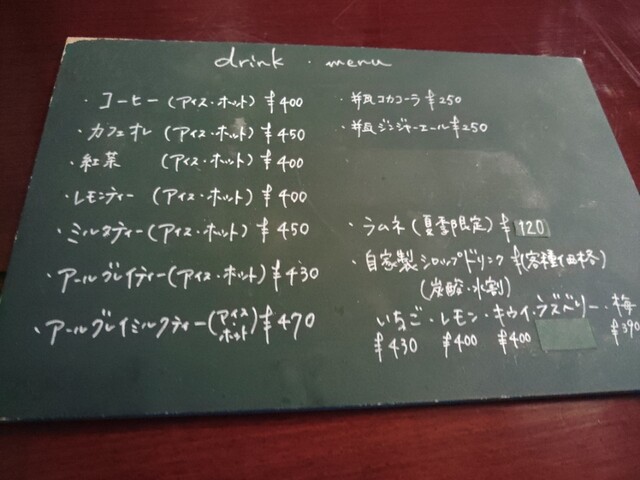 drink・menu
・コーヒー(アイス・ホット)¥400
・カフェオレ(アイス・ホット)¥450
・紅茶(アイス・ホット)¥400
・レモンティー(アイス・ホット)¥400
・ミルクティー(アイス・ホット)¥450
・アールグレイティー(アイス・ホット)¥430
・アールグレイミルクティー(アイス・ホット)¥470
・瓶コカコーラ¥250
・瓶ジンジャーエール¥250
・ラムネ(夏季限定)¥120
・自家製シロップドリンク¥(各種価格)
(炭酸・水割)
いちご・レモン・キウイ・ラズベリー・梅
¥430 ¥400 ¥400 ¥390